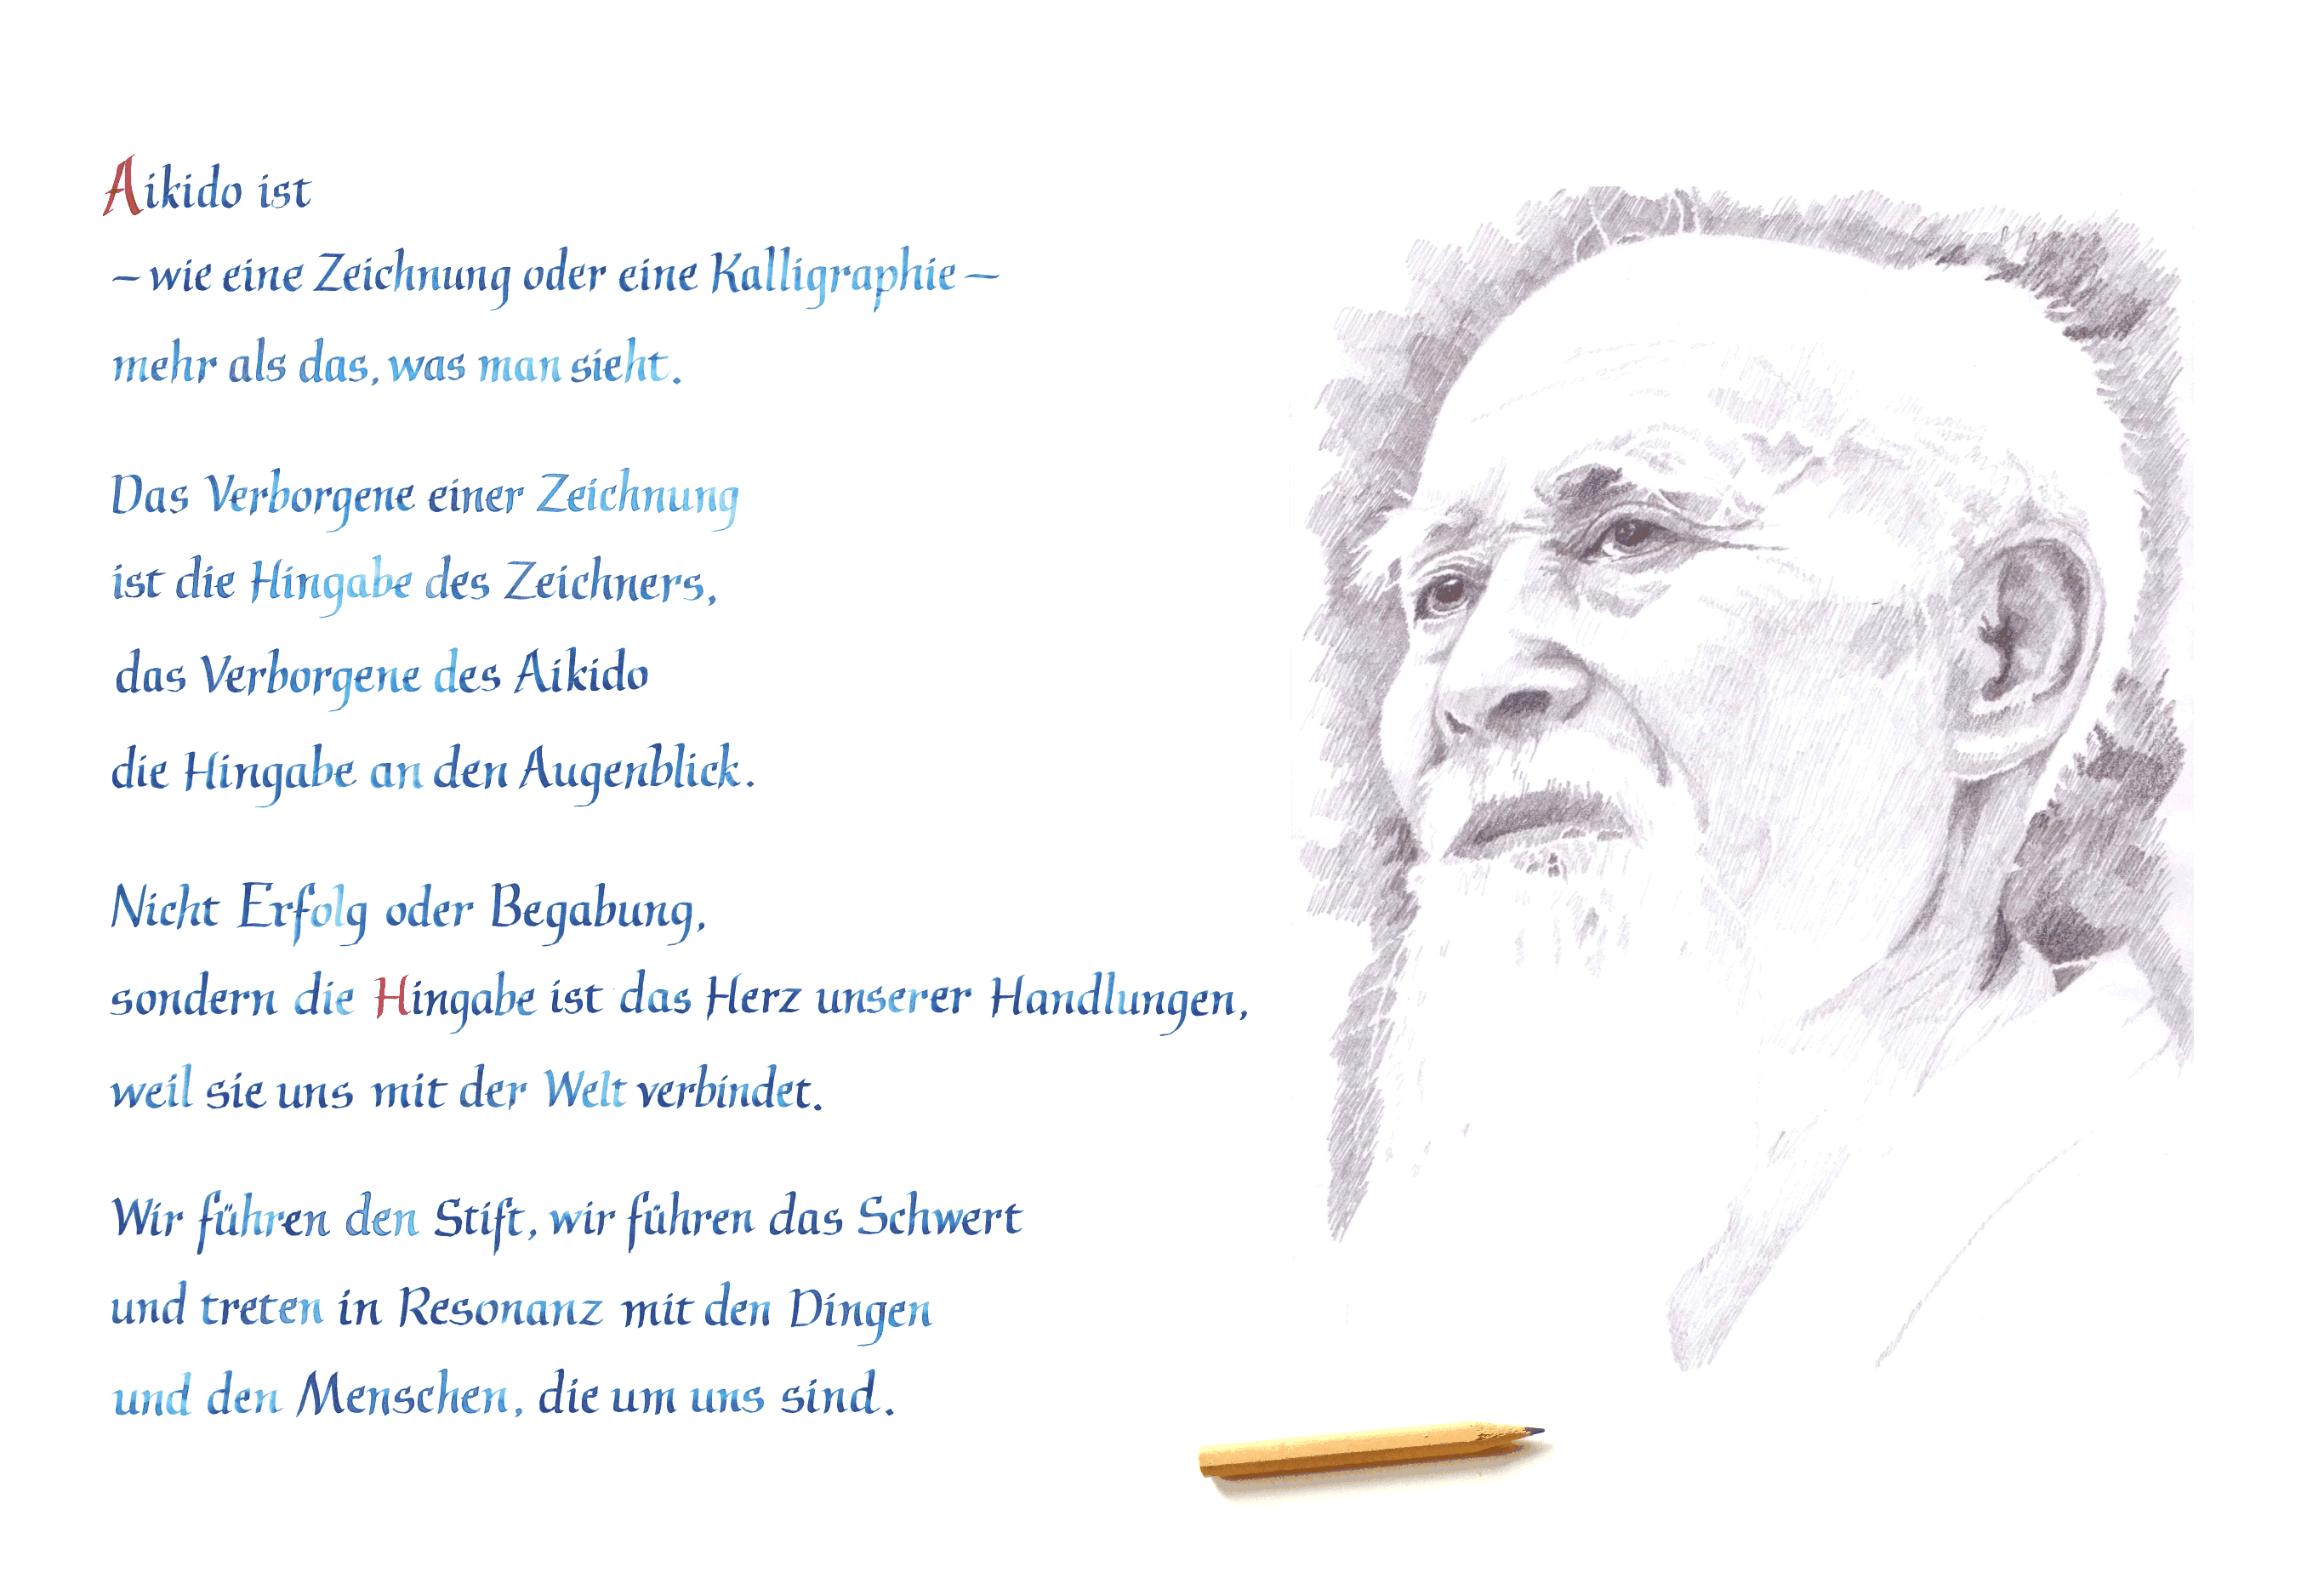 Aikido ist
– wie eine Zeichnung oder eine Kalligraphie –
mehr als das, was man sieht.
Das Verborgene einer Zeichnung
ist die Hingabe des Zeichners,
das Verborgene des Aikido
die Hingabe an den Augenblick.
Nicht Erfolg oder Begabung,
sondern die Hingabe ist das Herz unserer Handlungen,
weil sie uns mit der Welt verbindet.
Wir führen den Stift, wir führen das Schwert
und treten in Resonanz mit den Dingen
und den Menschen, die um uns sind.